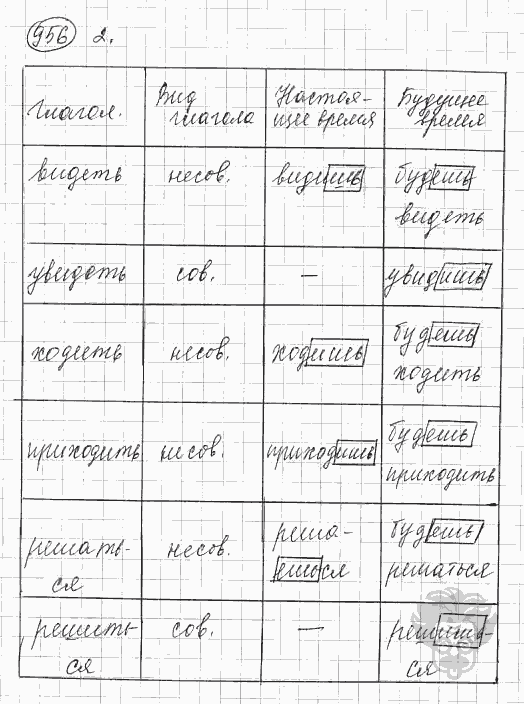 956 2.
Глагол. Вид глагола Настоя- щее время Будущее время
видеть несов. видишь будешь видеть
увидеть сов. — увидишь
ходить несов. ходишь будешь ходить
приходить несов. приходишь будешь приходить
решать- ся несов. реша- ешься будешь решаться
решить- ся сов. — решишь- ся